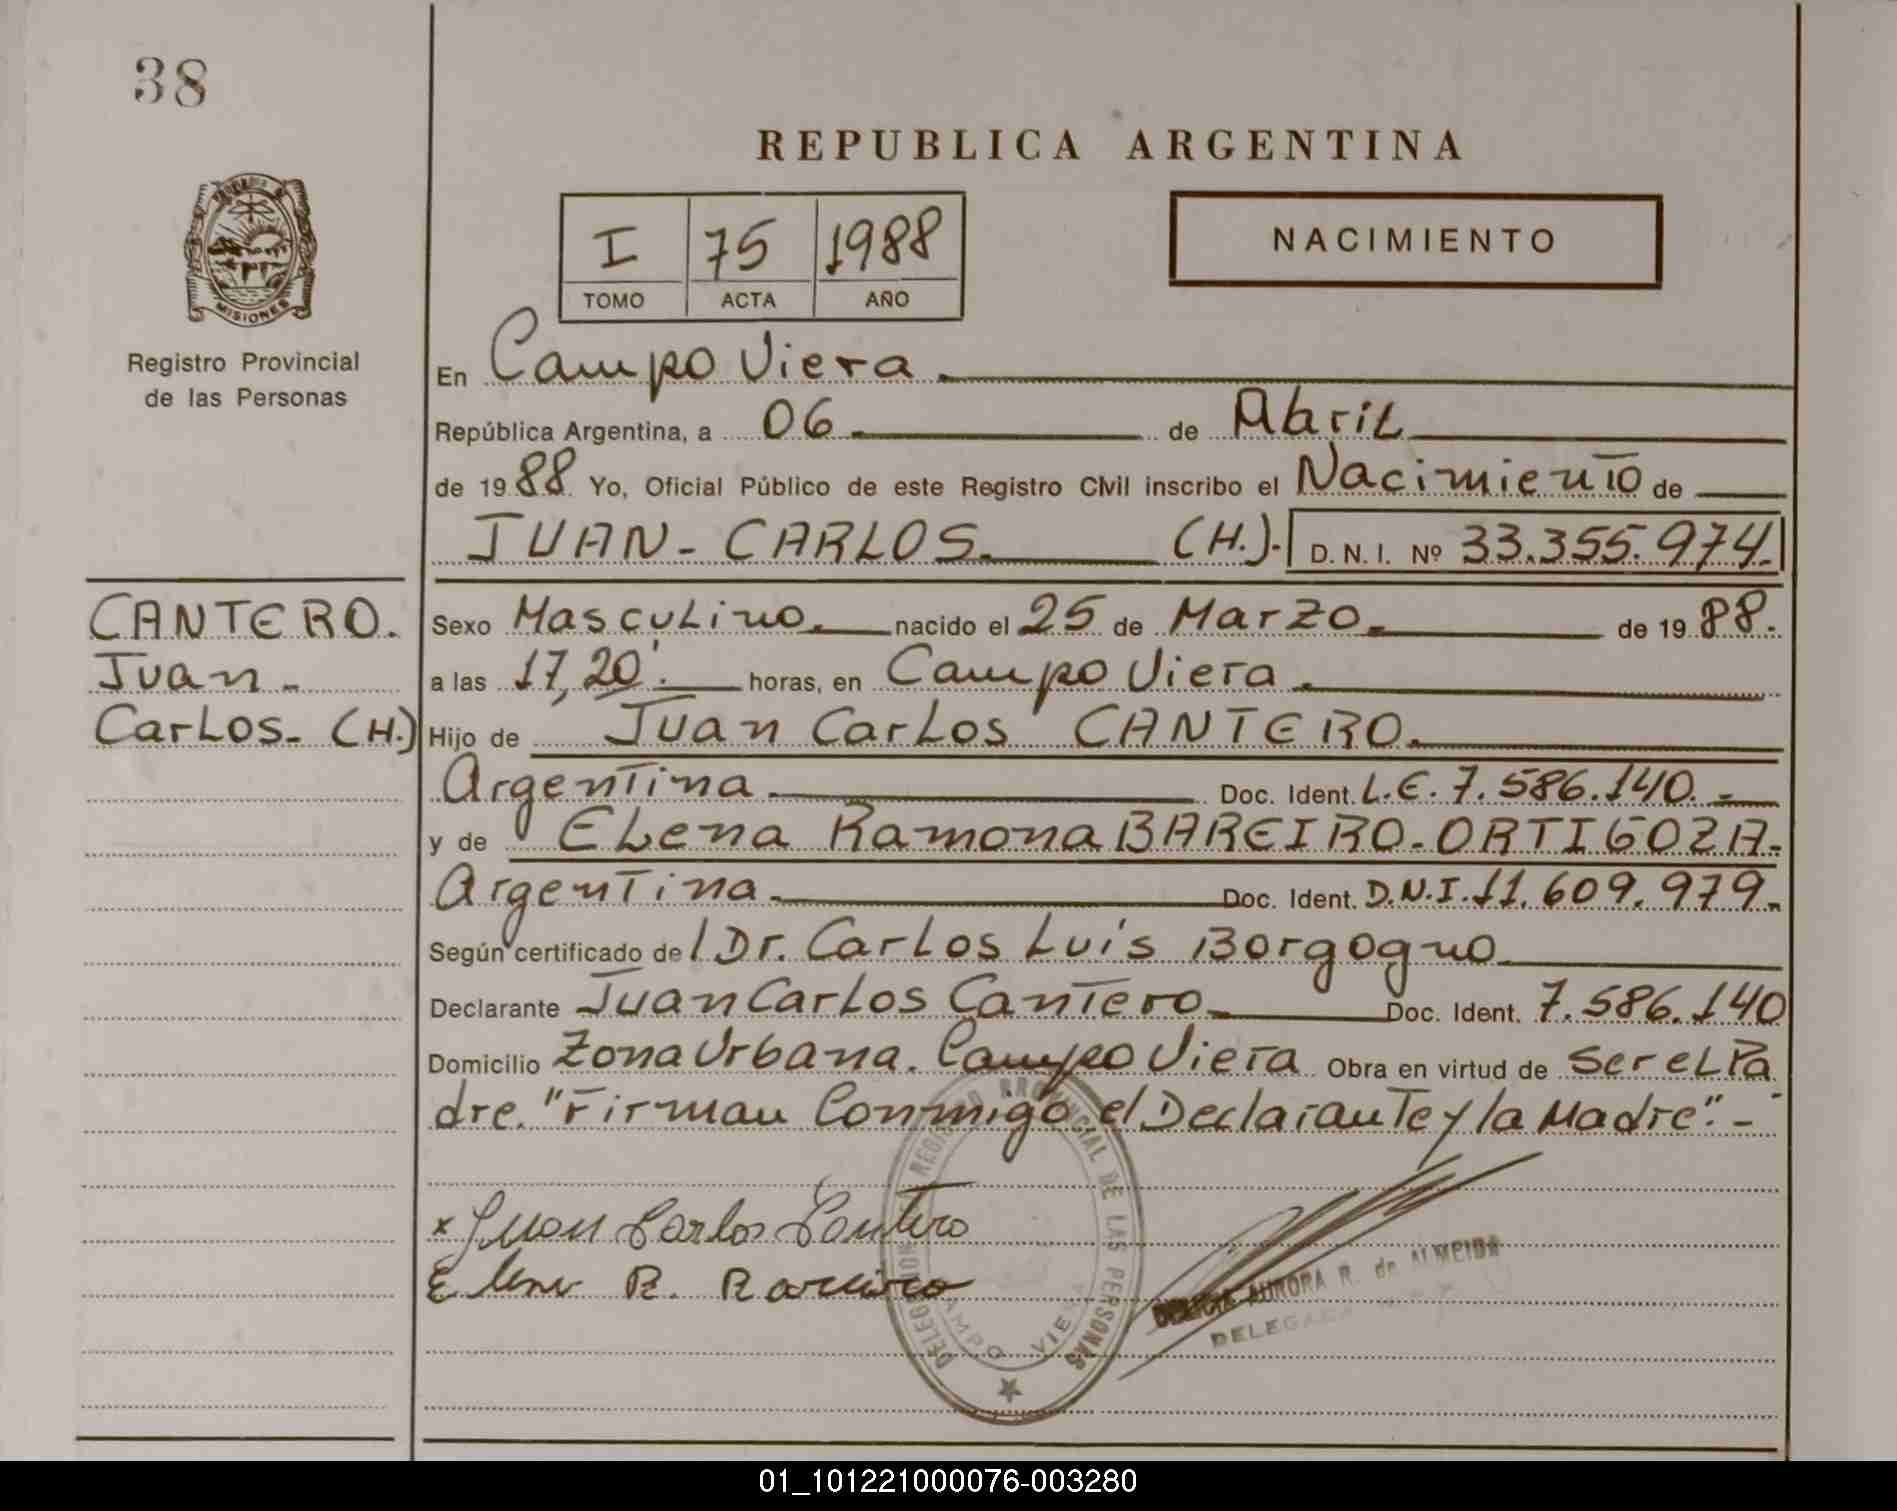 38
REPUBLICA ARGENTINA
MISIONES
Registro Provincial
de las Personas
I 75 1988
TOMO ACTA AÑO
NACIMIENTO
En Campo Viera.
República Argentina, a 06 de Abril
de 1988 Yo, Oficial Público de este Registro Civil inscribo el Nacimiento de
JUAN-CARLOS. (H.).- D. N. I. Nº 33.355.974.
CANTERO.
Juan-
Carlos- (H.)
Sexo Masculino. nacido el 25 de Marzo. de 1988.
a las 17,20'. horas, en Campo Viera.
Hijo de Juan Carlos CANTERO.
Argentina. Doc. Ident. L.E. 7.586.140.-
y de Elena Ramona BAREIRO-ORTIGOZA-
Argentina. Doc. Ident. D.N.I. 11.609.979.
Según certificado del Dr. Carlos Luis Borgogno
Declarante Juan Carlos Cantero. Doc. Ident. 7.586.140
Domicilio Zona Urbana. Campo Viera Obra en virtud de ser el Pa
dre. "Firman Conmigo el Declarante y la Madre".-
x Juan Carlos Cantero
Elena R. Bareiro
DELEGACION REGISTRO PROVINCIAL DE LAS PERSONAS
CAMPO VIERA
AURORA R. de ALMEIDA
01_101221000076-003280